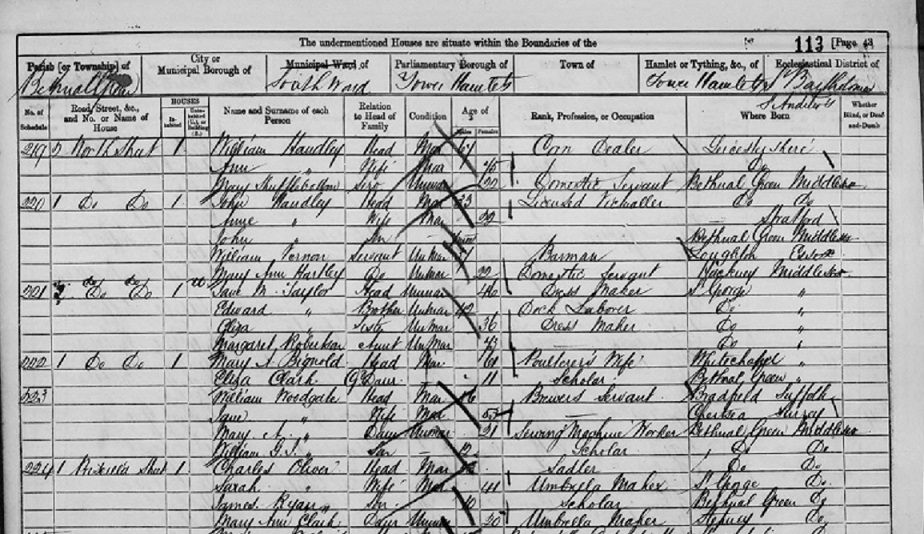 The undermentioned Houses are situate within the Boundaries of the 113 [Page 43
Parish [or Township] of City or Municipal Borough of Municipal Ward of Parliamentary Borough of Town of Hamlet or Tything, &c., of Ecclesiastical District of
Bethnal Green South Ward Tower Hamlets Tower Hamlets St Bartholomew
No. of Schedule Road, Street, &c., and No. or Name of House HOUSES In-habited Unin-habited (U.), or Building (B.) Name and Surname of each Person Relation to Head of Family Condition Age of Males Females Rank, Profession, or Occupation Where Born Whether Blind, or Deaf-and-Dumb
219 North Street 1 William Handley Head Mar 67 Corn Dealer Leicestershire
Ann " Wife Mar Do
Mary Shufflebottom Serv Unmar 20 Domestic Servant Bethnal Green Middlesex
220 1 Do Do 1 John Handley Head Mar 33 Licensed Victualler Do Do
Anne " Wife Mar 29 — Stratford
John " Son Bethnal Green Middlesex
William Vernon Servant Unmar Barman Loughton Essex
Mary Ann Hartley Do Unmar 22 Domestic Servant Hackney Middlesex
221 Do Do 1 Jane M. Taylor Head Unmar 40 Dress Maker St George "
Edward " Brother Unmar 42 Dock Laborer Do "
Eliza " Sister Unmar 36 Dress Maker Do "
Margaret Robertson Aunt Unmar Do "
222 1 Do Do 1 Mary A Bignold Head Mar Poulterers Wife Whitechapel "
Eliza Clark G Daur 11 Scholar Bethnal Green "
223 William Woodgate Head Mar Brewers Servant Bradfield Suffolk
Jane " Wife Mar — Chelsea Surrey
Mary A. " Daur Unmar 21 Sewing Machine Worker Bethnal Green Middlesex
William G.J. " Son 12 Scholar Do Do
224 1 Street 1 Charles Oliver Head Mar Sadler Do Do
Sarah " Wife Mar 41 Umbrella Maker St George Do
James Ryan " Son 10 Scholar Bethnal Green Do
Mary Ann Clark Daur Unmar 20 Umbrella Maker Stepney Do